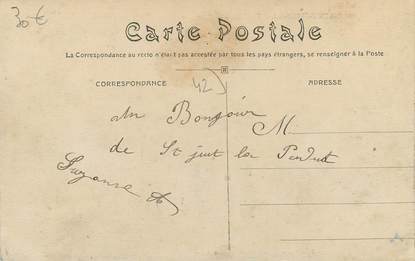 30 €
Carte Postale
La Correspondance au recto n'étant pas acceptée par tous les pays étrangers, se renseigner à la Poste
CORRESPONDANCE
ADRESSE
42
un Bonjour
M
de St just la Pendue
Suzanne